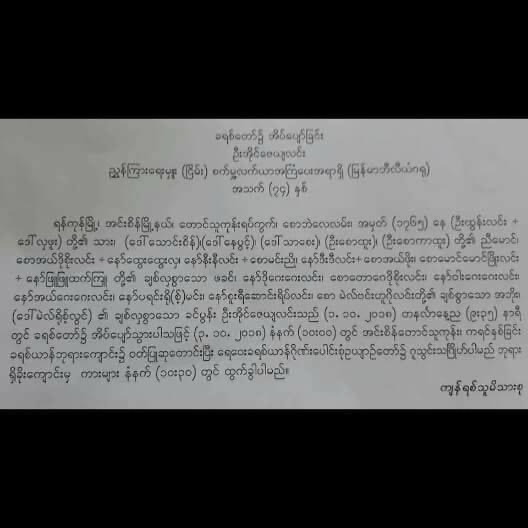 ခရစ်တော်၌ အိပ်ပျော်ခြင်း
ဦးအိုင်ဇေယျလင်း
ညွှန်ကြားရေးမှူး (ငြိမ်း) စက်မှုလက်ယာအကြံပေးအရာရှိ (မြန်မာဘီလီယံဂရု)
အသက် (၇၄) နှစ်
ရန်ကုန်မြို့၊ အင်းစိန်မြို့နယ်၊ တောင်သူကုန်းရပ်ကွက်၊ စောဘဲလေလမ်း၊ အမှတ် (၁၇၆၅) နေ (ဦးထွန်းလင်း +
ဒေါ်လှဖူး) တို့၏ သား၊ (ဒေါ်သောင်းစိန်)၊(ဒေါ်နေပွင့်)၊ (ဒေါ်သာစေး)၊ (ဦးစောထူး)၊ (ဦးစောကာထူး) တို့၏ ညီမောင်၊
စောအယ်ဒိုစိုးလင်း + နော်ထွေးထွေးလှ၊ နော်နီးနီလင်း + စောမင်းညို၊ နော်ဒီးဒီလင်း+ စောအယ်ဖိုး၊ စောမောင်မောင်ဖြိုးလင်း
+ နော်ဖြူဖြူထက်ကြူ တို့၏ ချစ်လှစွာသော ဖခင်၊ နော်ဒိုဂေးဂေးလင်း၊ စောတောဂေဒိုစိုးလင်း၊ နော်ဝါးဂေးဂေးလင်း၊
နော်အယ်ဂေးဂေးလင်း၊ နော်ပရင်းရှို(စ့်)မင်း၊ နော်စူးရီဆောင်းရိပ်လင်း၊ စော မဲလ်ဗင်းဟူဂိုလင်းတို့၏ ချစ်စွာသော အဘိုး၊
(ဒေါ်မဲလ်ရို့စ့်လွင်) ၏ ချစ်လှစွာသော ခင်ပွန်း ဦးအိုင်ဇေယျလင်းသည် (၁. ၁၀. ၂၀၁၈) တနင်္လာနေ့ည (၉း၃၅) နာရီ
တွင် ခရစ်တော်၌ အိပ်ပျော်သွားပါသဖြင့် (၃. ၁၀. ၂၀၁၈) နံနက် (၁၀း၀၀) တွင် အင်းစိန်တောင်သူကုန်း၊ ကရင်နှစ်ခြင်း
ခရစ်ယာန်ဘုရားကျောင်း၌ ဝတ်ပြုဆုတောင်းပြီး ရေဝေးခရစ်ယာန်ဂိုဏ်းပေါင်းစုံဥယျာဉ်တော်၌ ဂူသွင်းသဂြိုဟ်ပါမည် ဘုရား
ရှိခိုးကျောင်းမှ ကားများ နံနက် (၁၀း၃၀) တွင် ထွက်ခွါပါမည်။
ကျန်ရစ်သူမိသားစု